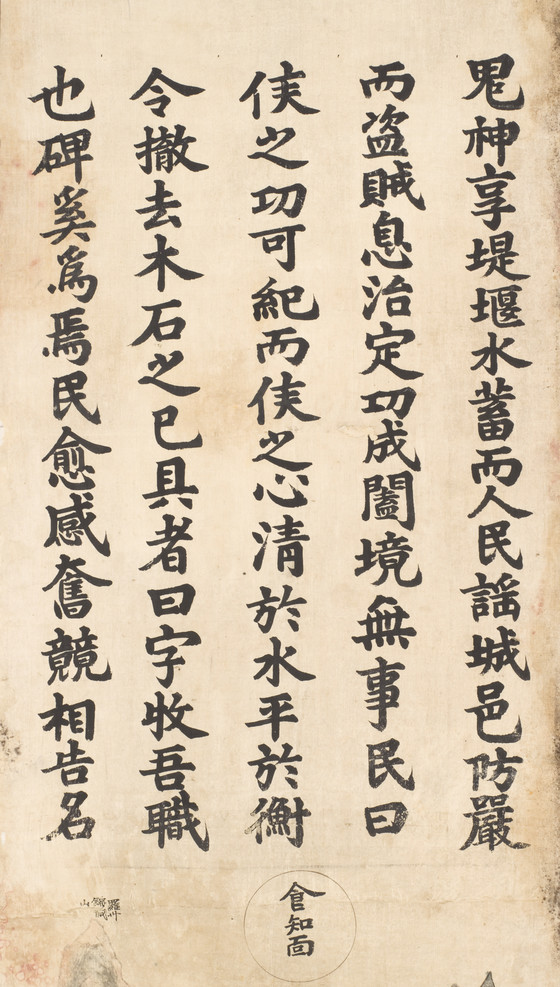 鬼神享堤堰水蓄而人民謠城邑防嚴
而盜賊息治定功成闔境無事民曰
侯之功可紀而侯之心清於水平於衡
令撤去木石之已具者曰字收吾職
也碑奚爲焉民愈感奮競相告名
食知面
羅州
錦城
山